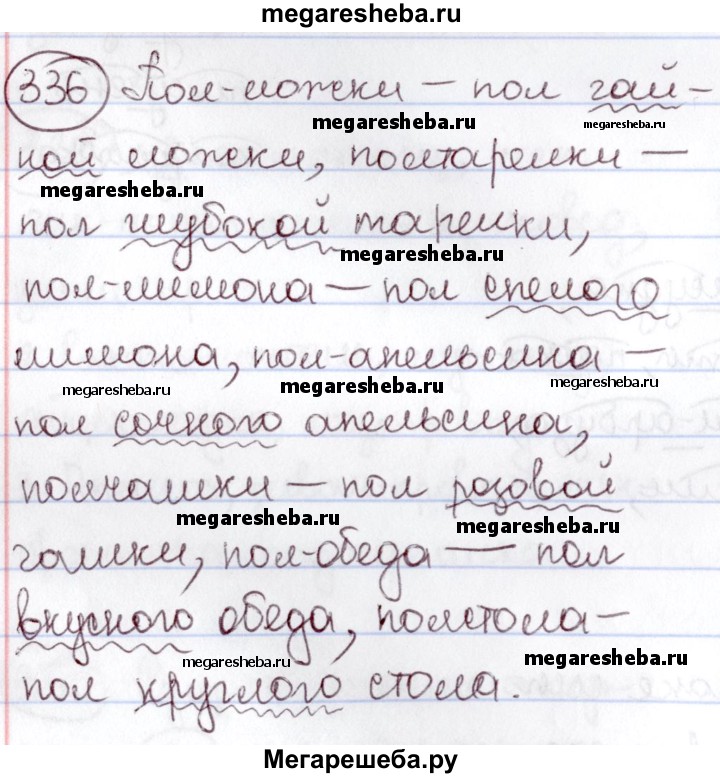 megaresheba.ru
336 Пол-ложки — пол чай-
megaresheba.ru
megaresheba.ru
ной ложки, полтарелки —
megaresheba.ru
пол глубокой тарелки,
megaresheba.ru
пол-лимона — пол спелого
лимона, пол-апельсина —
megaresheba.ru megaresheba.ru megaresheba.ru
пол сочного апельсина,
полчашки — пол розовой
megaresheba.ru megaresheba.ru
чашки, пол-обеда — пол
вкусного обеда, полстола —
megaresheba.ru megaresheba.ru
пол круглого стола.
Мегарешеба.ру